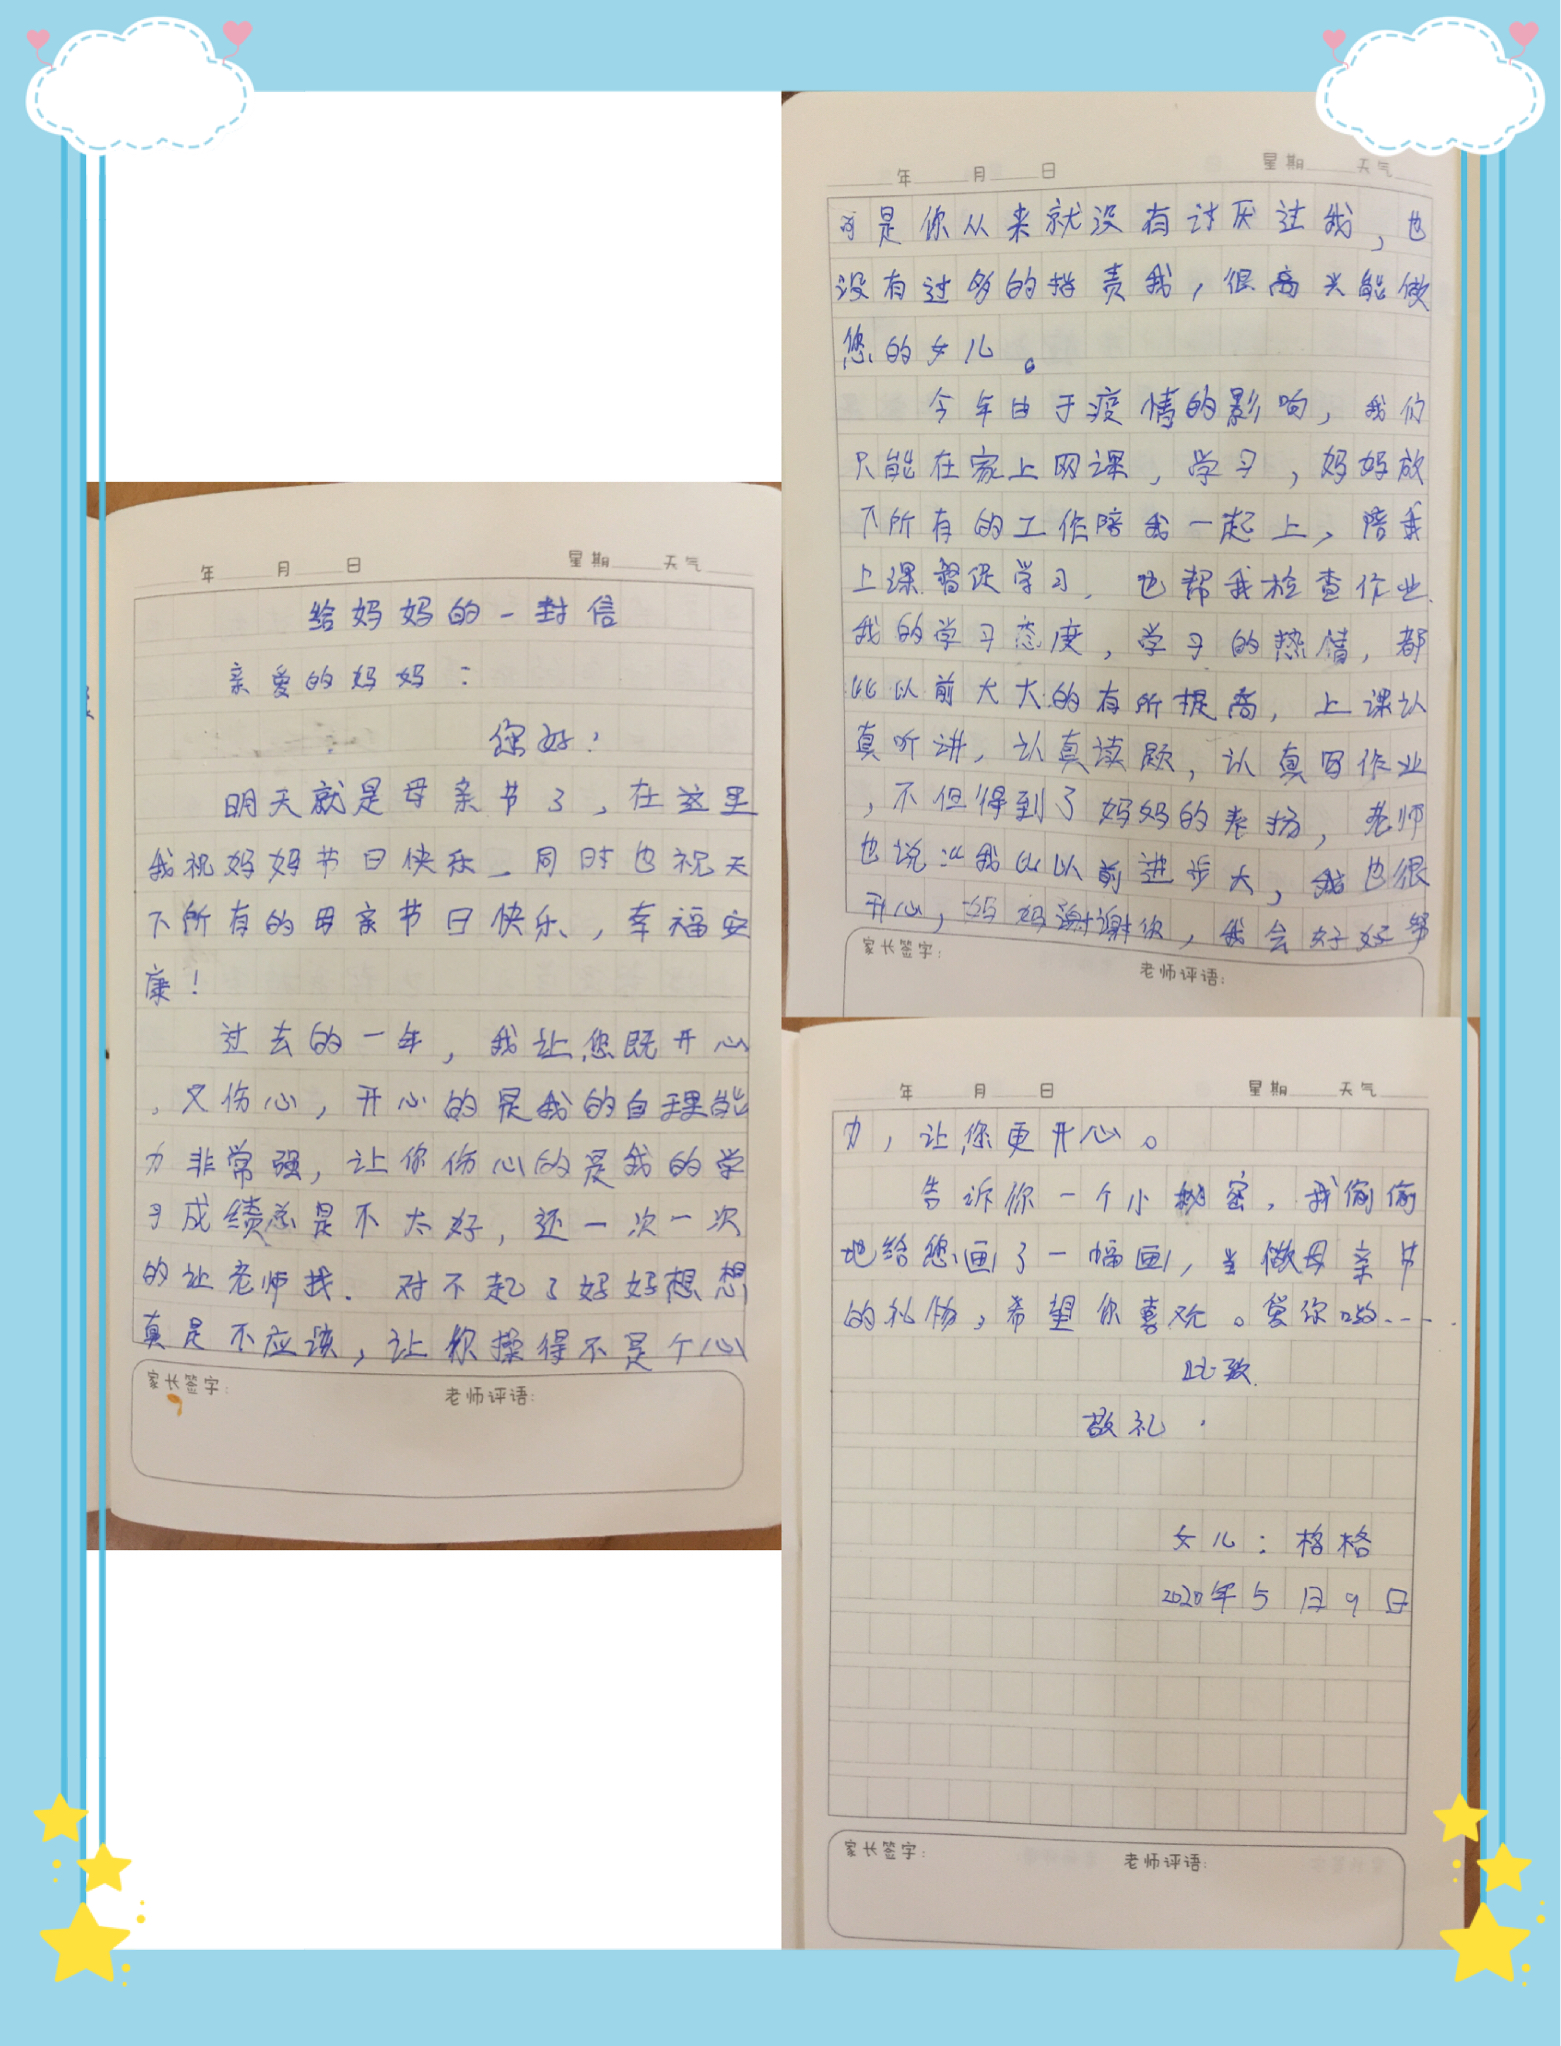 年 月 日 星期 天气
给妈妈的一封信
亲爱的妈妈：
您好！
明天就是母亲节了，在这里
我祝妈妈节日快乐、同时也祝天
下所有的母亲节日快乐、，幸福安
康！
过去的一年，我让您既开心
，又伤心，开心的是我的自理能
力非常强，让你伤心的是我的学
习成绩总是不太好，还一次一次
的让老师找．对不起了好好想想
真是不应该，让你操得不是个心
家长签字：
老师评语：
年 月 日 星期 天气
可是你从来就没有讨厌过我，也
没有过多的指责我，很高兴能做
您的女儿。
今年由于疫情的影响，我们
只能在家上网课，学习，妈妈放
下所有的工作陪我一起上，陪我
上课督促学习．也帮我检查作业．
我的学习态度，学习的热情，都
比以前大大的有所提高，上课认
真听讲，认真读题，认真写作业
，不但得到了妈妈的表扬，老师
也说：“我比以前进步大，我也很
开心，妈妈谢谢你，我会好好努
家长签字：
老师评语：
年 月 日 星期 天气
力，让您更开心。
告诉你一个小秘密，我偷偷
地给您画了一幅画，当做母亲节
的礼物，希望你喜欢。爱你哟……
此致．
敬礼．
女儿：格格
2020年5月9日
家长签字：
老师评语：